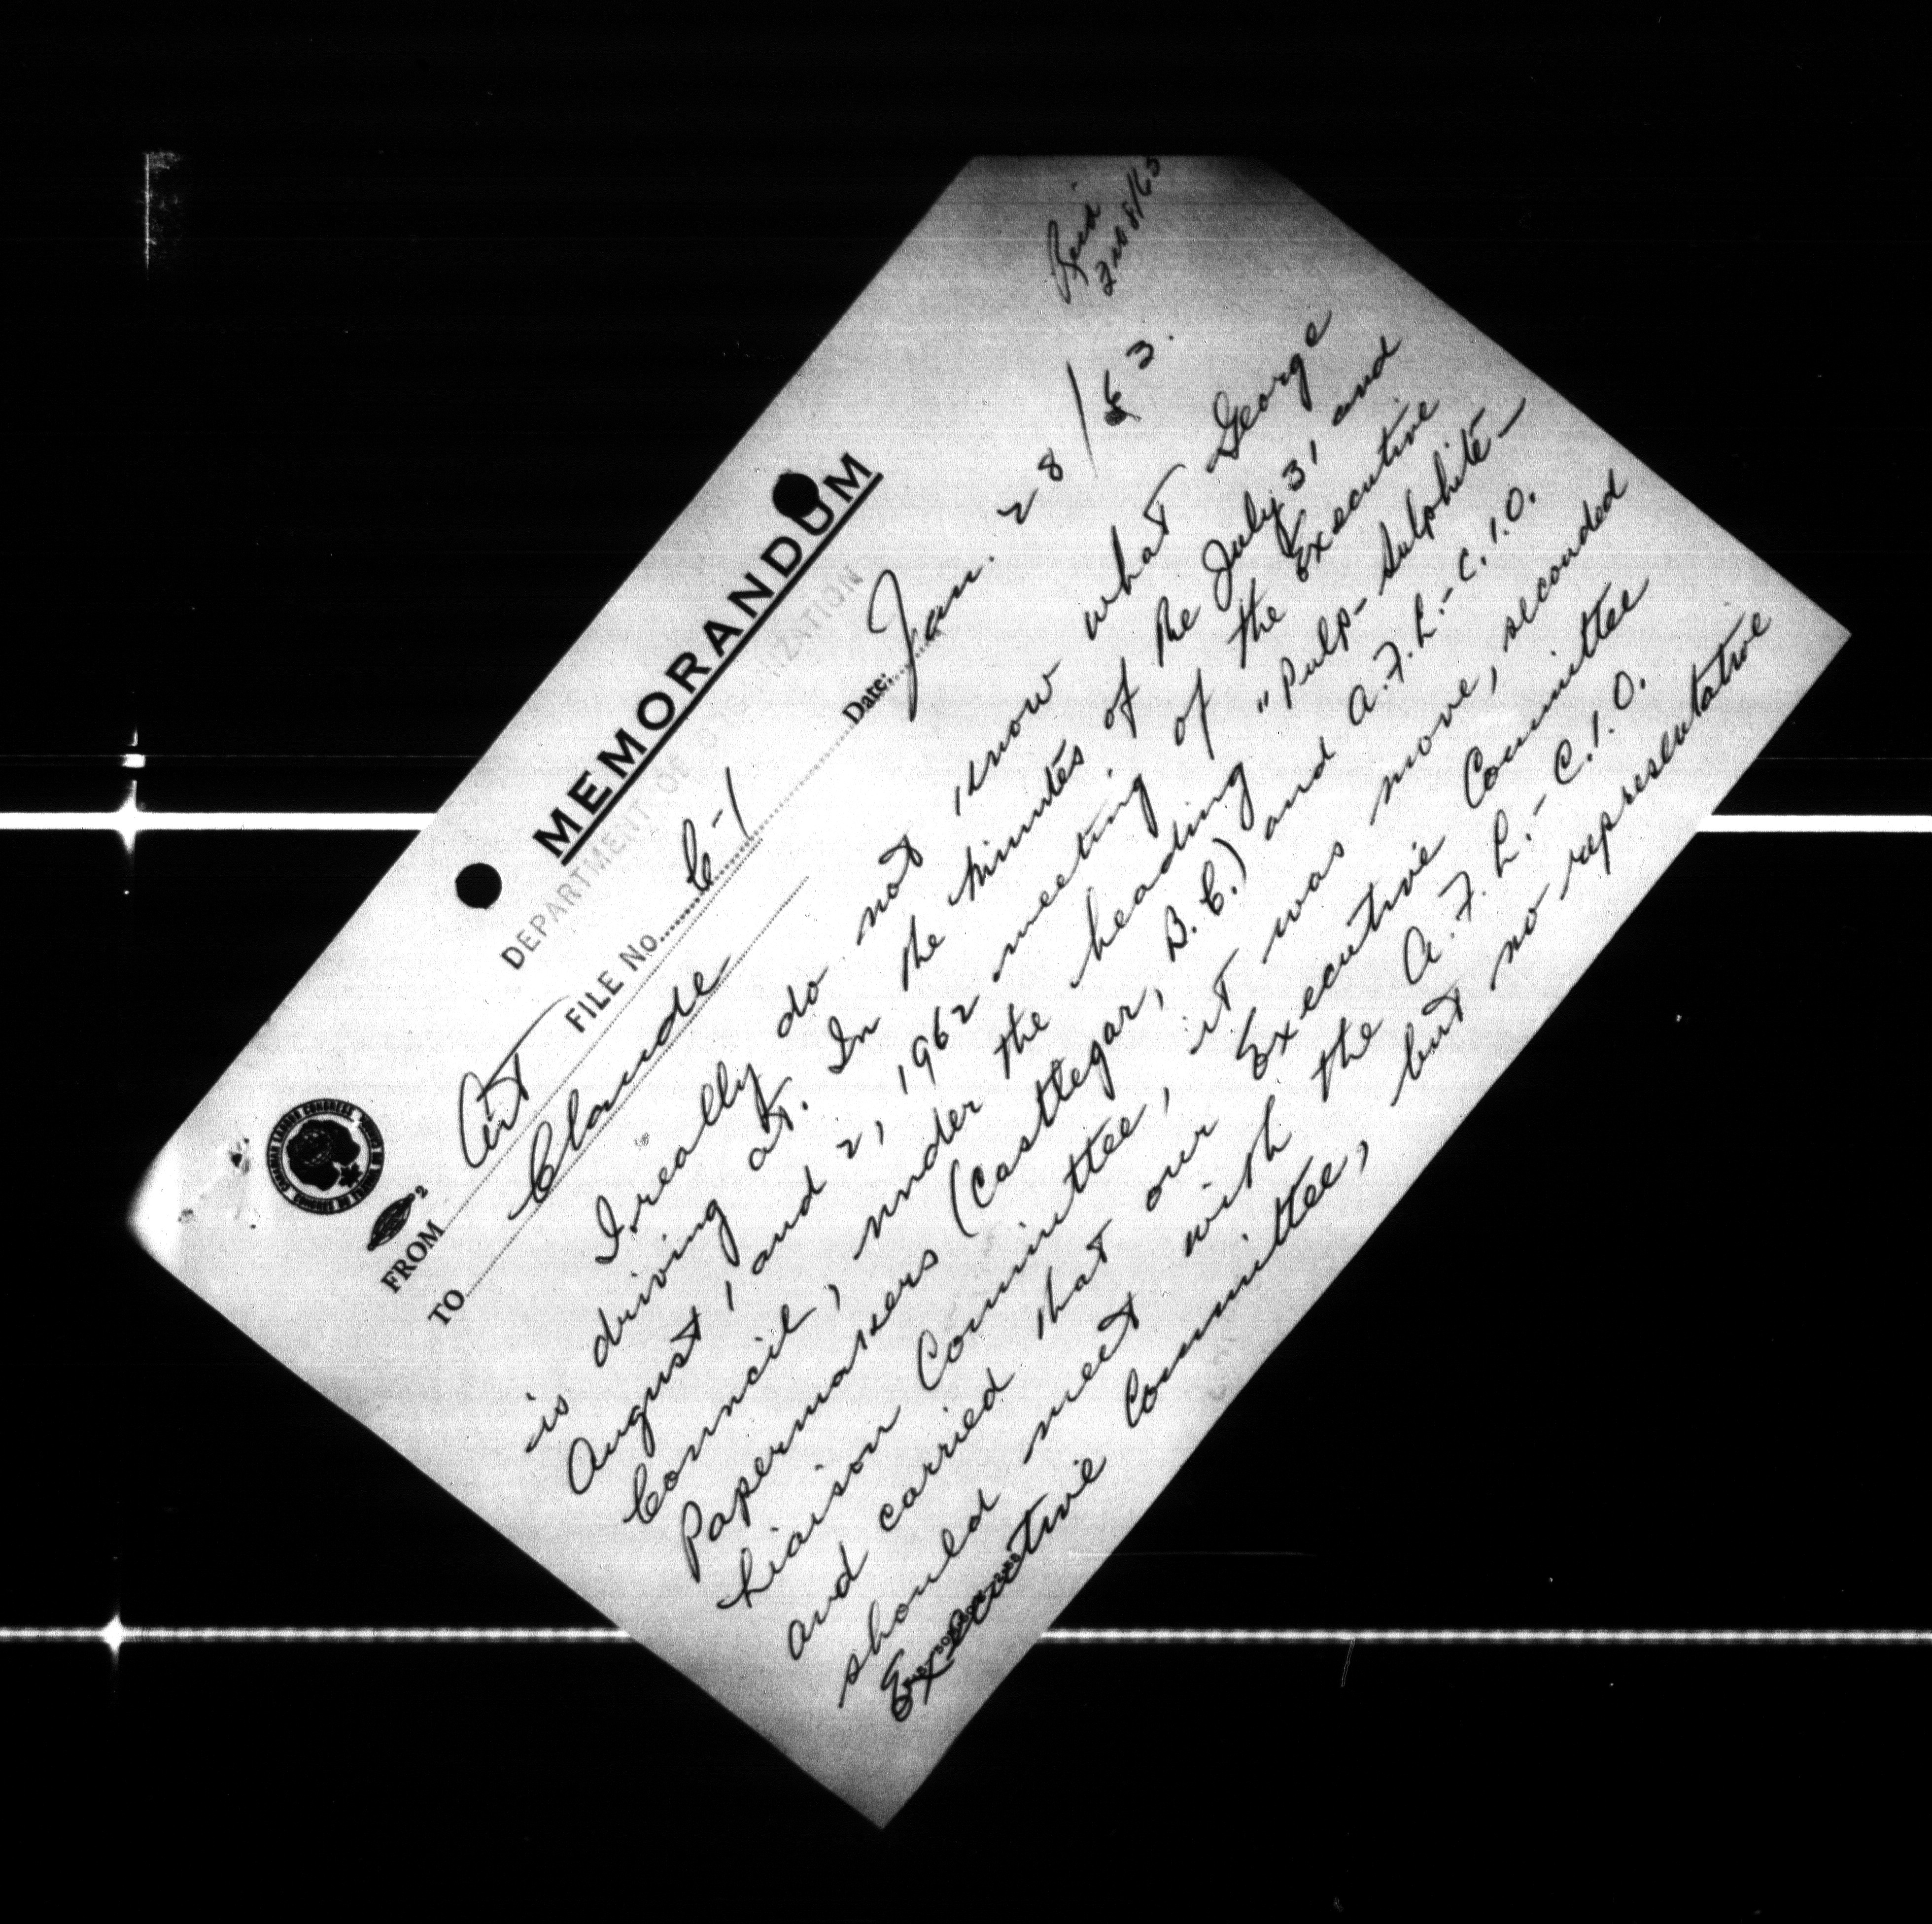 Rec'd
Feb 8/63
MEMORANDUM
DEPARTMENT OF ORGANIZATION
CANADIAN LABOUR CONGRESS CONGRÈS DU TRAVAIL DU CANADA
2
FROM Art FILE No. C-1 Date: Jan. 28/63.
TO Claude
I really do not know what George
is driving at. In the Minutes of the July 31 and
August 1 and 2, 1962 meeting of the Executive
Council, under the heading "Pulp-Sulphite-
Papermakers (Castlegar, B.C.) and A.F.L.-C.I.O.
Liaison Committee, it was move, seconded
and carried that our Executive Committee
should meet with the A.F.L.-C.I.O.
Executive Committee, but no representative